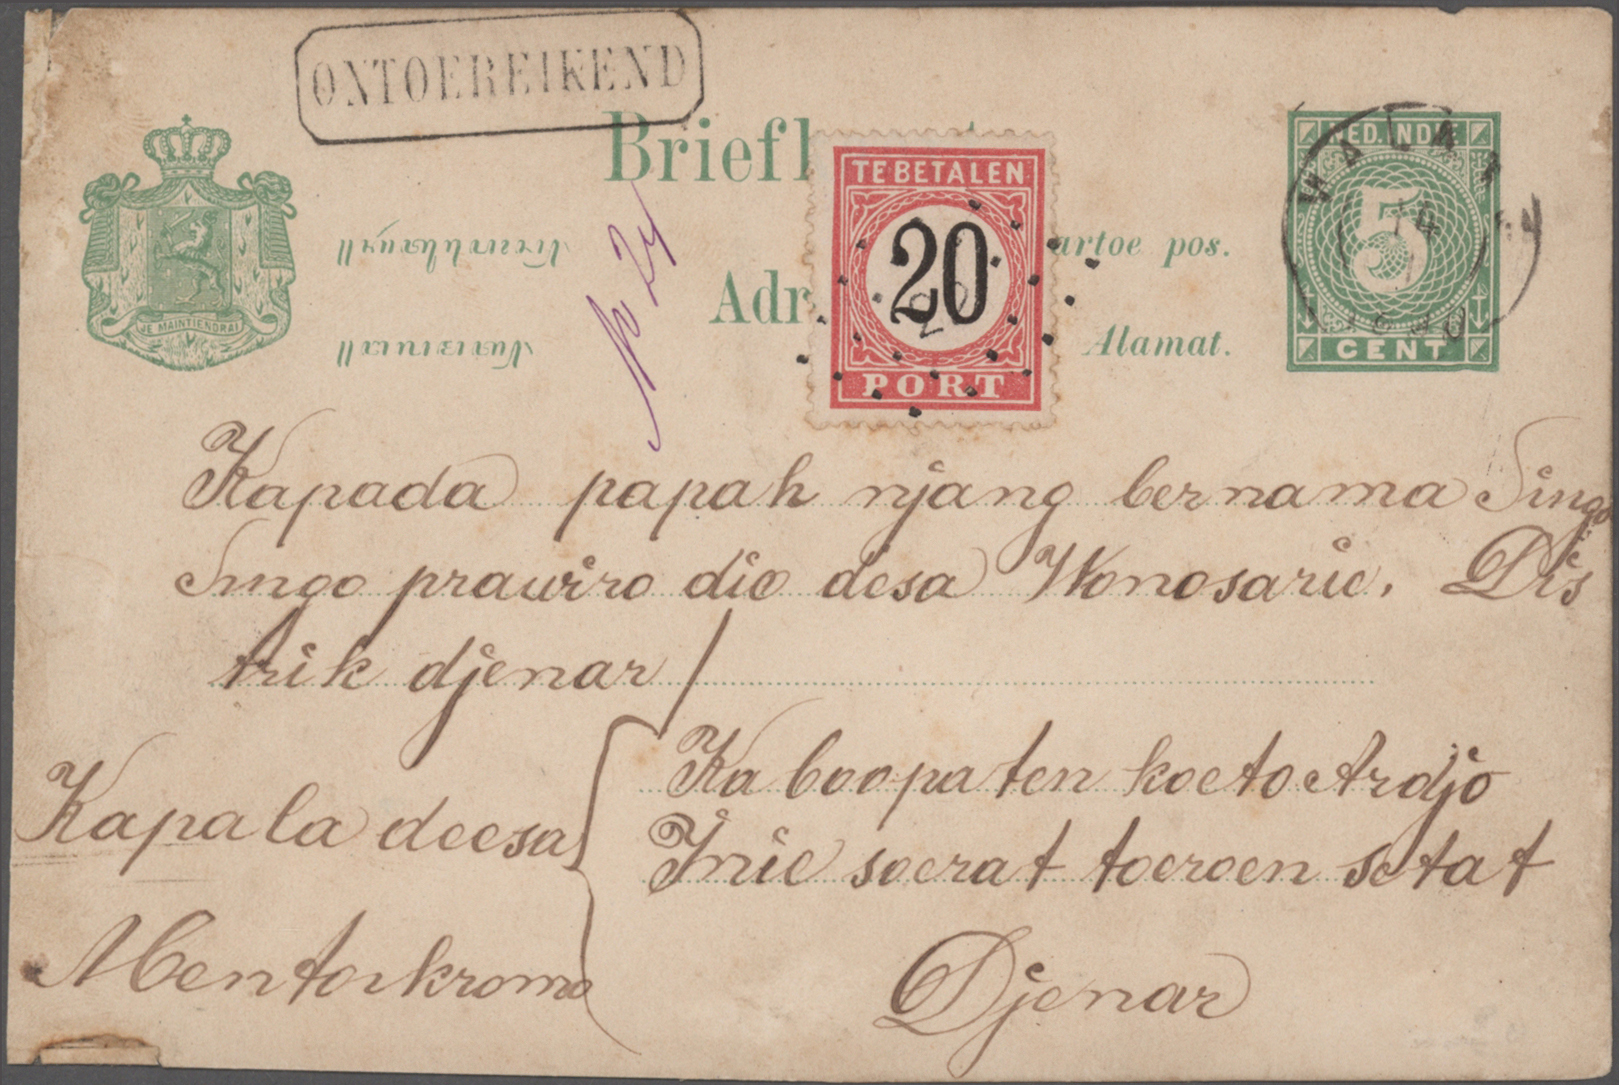 ONTOEREIKEND
Briefk
TE BETALEN
20
PORT
NED. INDIE
5
CENT
artoe pos.
Adr
Alamat.
JE MAINTIENDRAI
N 24
Kapada papah njang bernama Singo
Singo prawiro die desa Wonosarie. Dis
trik djenar /
Kaboopaten koeto Ardjo
Kapala deesa
Inie soerat toeroen setat
Mentorkromo
Djenar